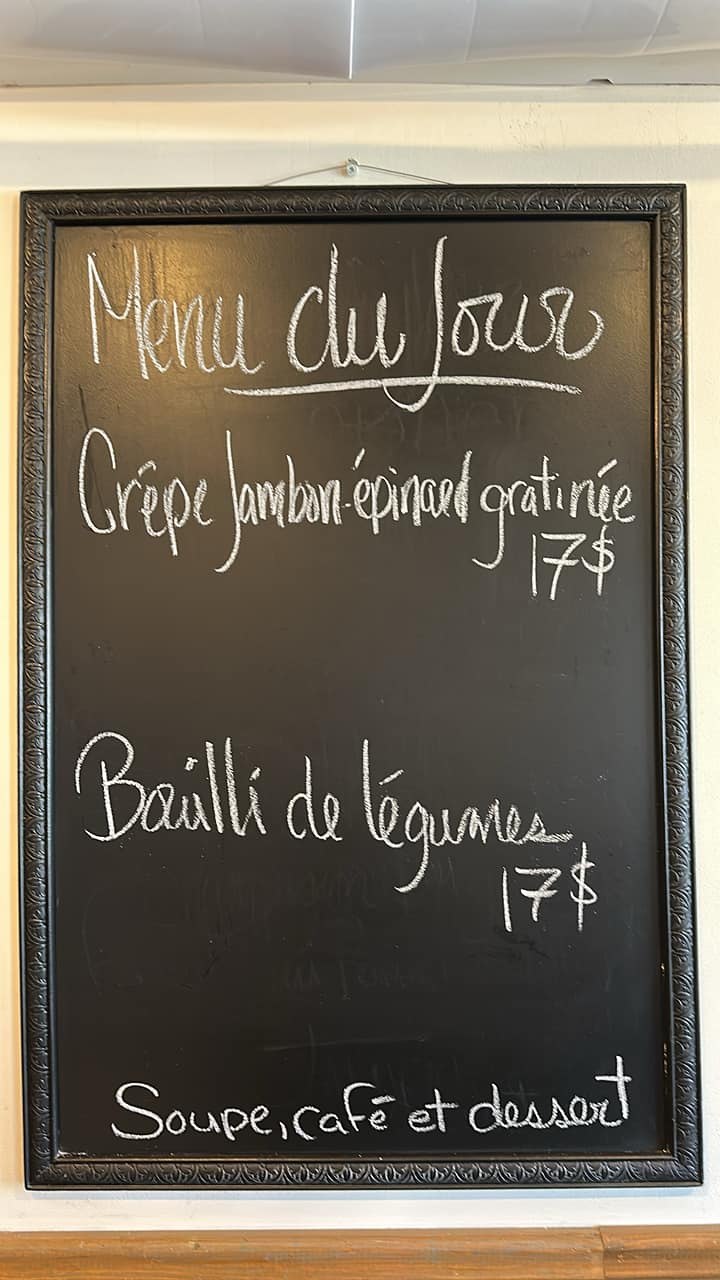 Menu du Jour
Crêpe Jambon-épinard gratinée
17$
Bouilli de légumes
17$
Soupe, café et dessert